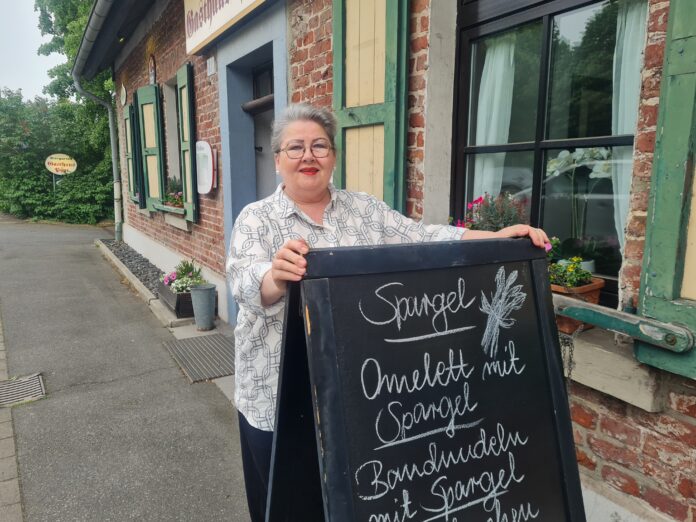 Gasthaus
Gasthaus
Spargel
Omelett mit
Spargel
Bandnudeln
mit Spargel